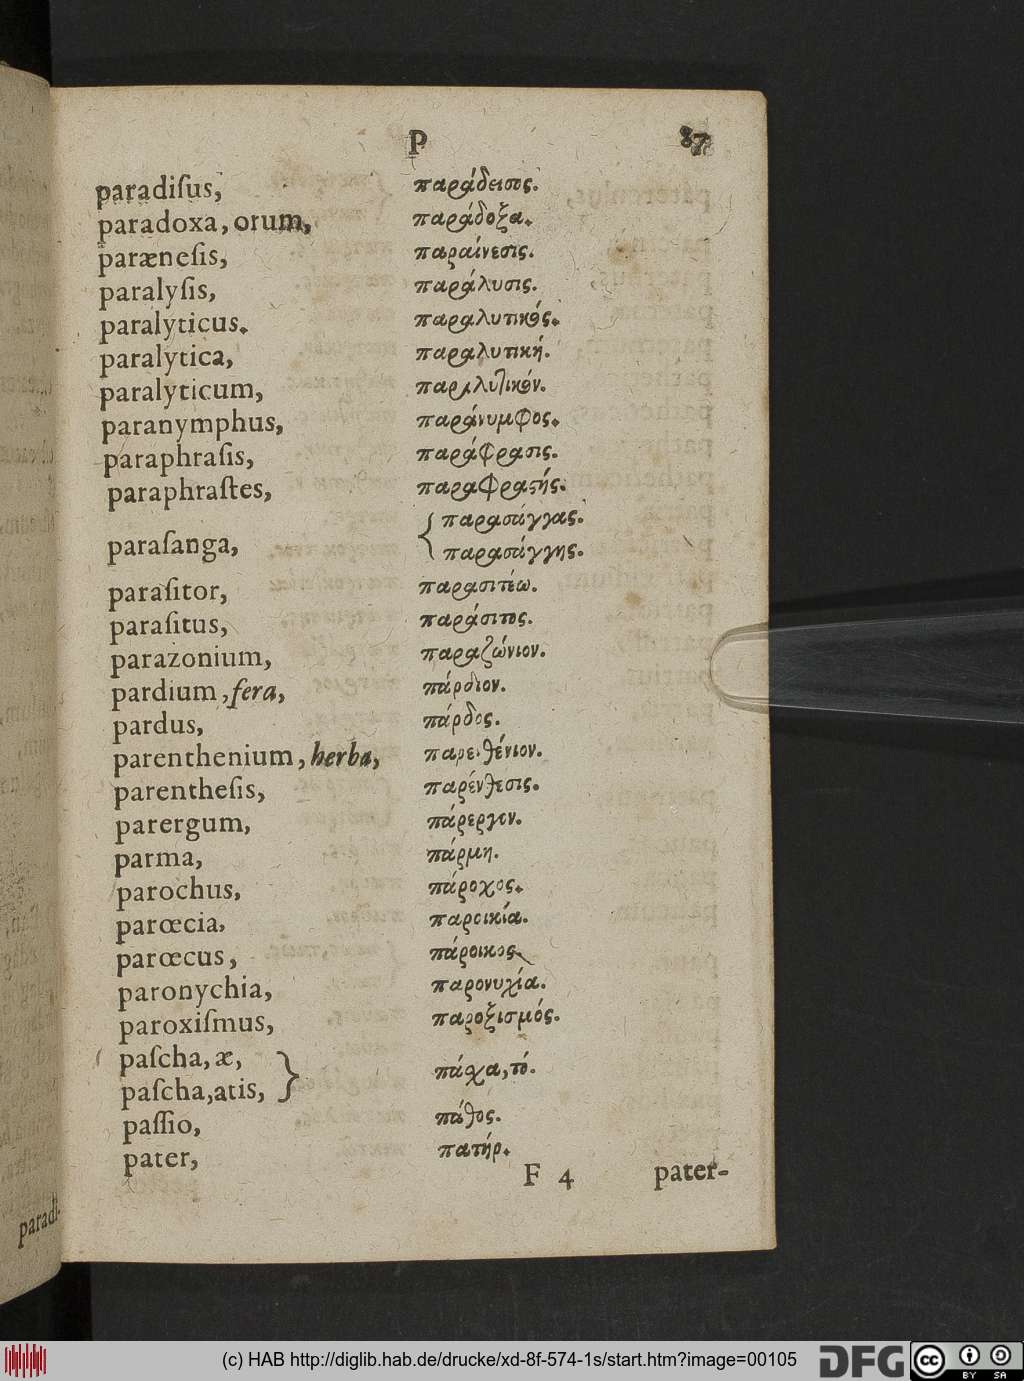 P 87
paradiſus, παράδεισος.
paradoxa, orum, παράδοξα.
paræneſis, παραίνεσις.
paralyſis, παράλυσις.
paralyticus. παραλυτικός.
paralytica, παραλυτική.
paralyticum, παραλυτικόν.
paranymphus, παράνυμφος.
paraphraſis, παράφρασις.
paraphraſtes, παραφραϛής.
paraſanga, { παρασάγγας.
παρασάγγης.
paraſitor, παρασιτέω.
paraſitus, παράσιτος.
parazonium, παραζώνιον.
pardium, fera, πάρδιον.
pardus, πάρδος.
parenthenium, herba, παρενθένιον.
parentheſis, παρένθεσις.
parergum, πάρεργον.
parma, πάρμη.
parochus, πάροχος.
parœcia, παροικία.
parœcus, πάροικος.
paronychia, παρονυχία.
paroxiſmus, παροξισμός.
paſcha, æ,
paſcha, atis, } πάσχα, τό.
paſſio, πάθος.
pater, πατήρ.
F 4 pater-
paradi-
(c) HAB http://diglib.hab.de/drucke/xd-8f-574-1s/start.htm?image=00105
DFG
cc BY SA